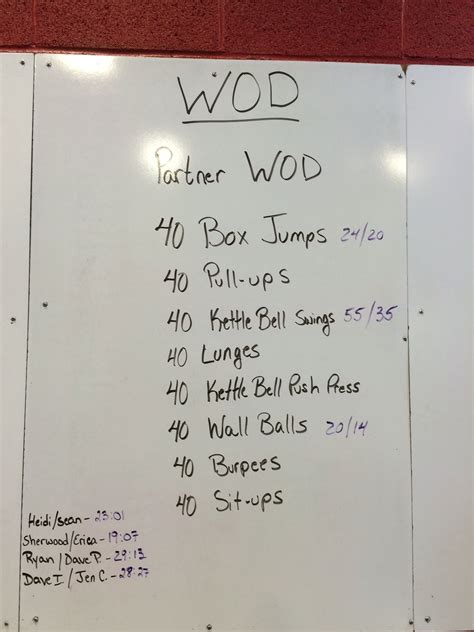 WOD
Partner WOD
40 Box Jumps 24/20
40 Pull-ups
40 Kettle Bell Swings 55/35
40 Lunges
40 Kettle Bell Push Press
40 Wall Balls 20/14
40 Burpees
40 Sit-ups
Heidi/Sean - 23:01
Sherwood/Erica - 19:07
Ryan / Dave P. - 29:13
Dave I / Jen C. - 28:27